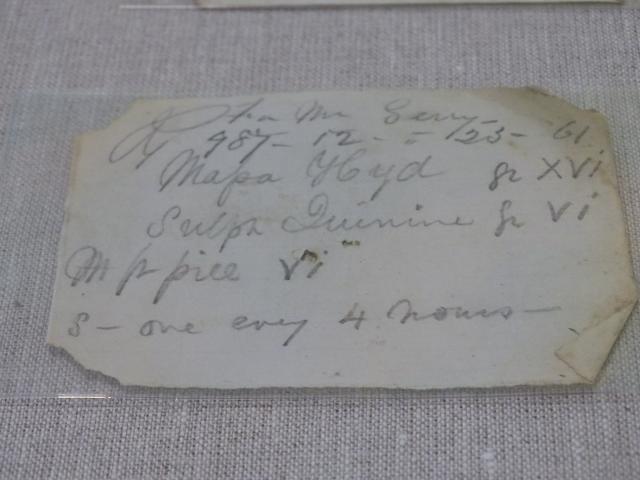 ℞ Mr Gery
987 - 12 - = 123 - 61
Massa Hyd gr XVi
Sulph Quinine gr Vi
M ft pill Vi
S - one every 4 hours -